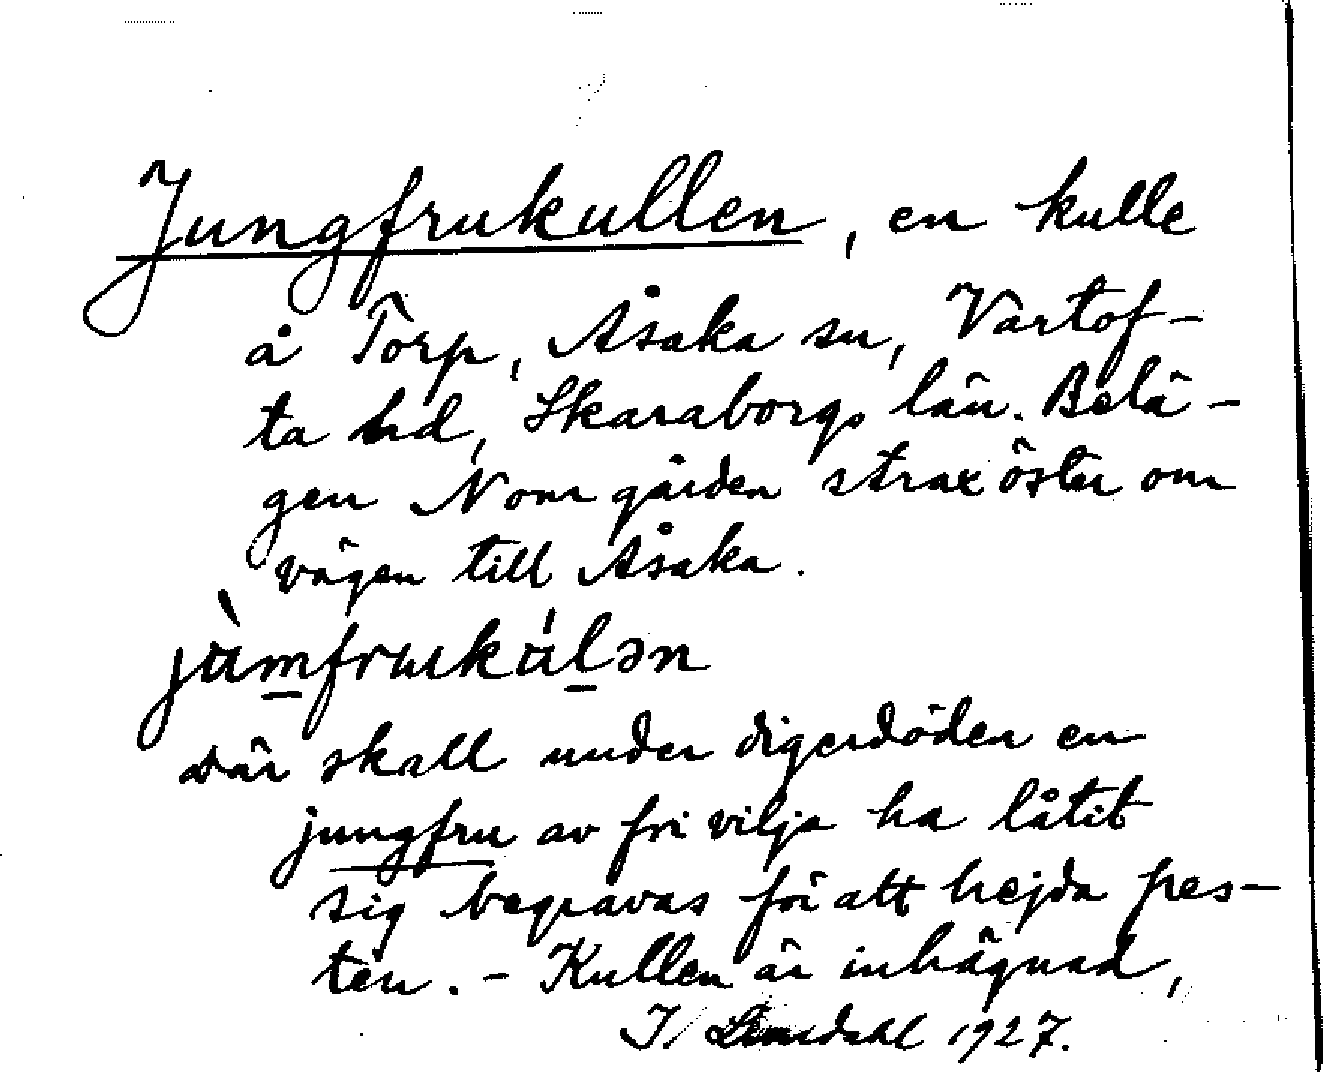 Jungfrukullen, en kulle
å Torp, Åsaka sn, Vartof-
ta hd, Skaraborgs län. Belä-
gen Norrgården strax öster om
vägen till Åsaka.
jùmfrukúlən
Där skall under digerdöden en
jungfru av fri vilja ha låtit
sig begravas för att hejda pes-
ten. - Kullen är inhägnad,
I. 1927.